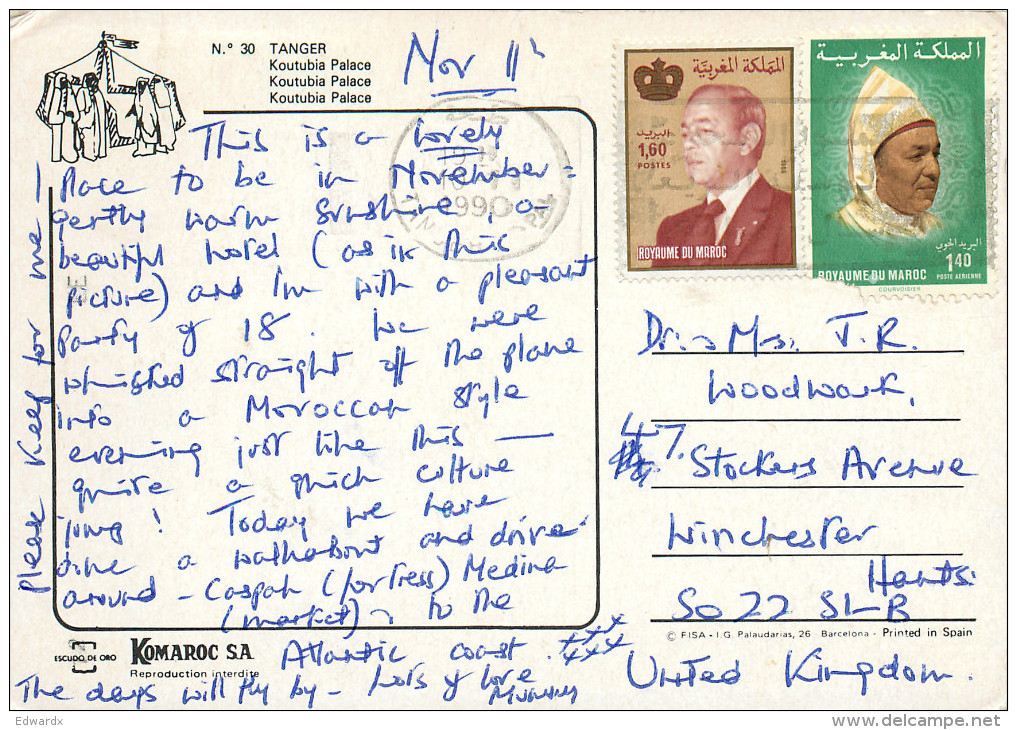 N.° 30 TANGER
Koutubia Palace
Koutubia Palace
Koutubia Palace
Nov 11
This is a lovely
place to be in November =
gently warm sunshine, a
beautiful hotel (as in this
picture) and I'm with a pleasant
party of 18. We were
whisked straight off the plane
into a Moroccan style
evening just like this —
quite a quick culture
jump! Today we have
done a walkabout and drive
around - Caspah (fortress) Medina
(market) & to the
Atlantic coast.
The days will fly by - Lots of love
Mummy
xxx
xxx
please keep for me
المملكة المغربية
البريد
1,60
POSTES
ROYAUME DU MAROC
المملكة المغربية
البريد الجوي
1,40
POSTE AERIENNE
ROYAUME DU MAROC
COURVOISIER
1990
Dr. & Mrs. J. R.
Woodwark,
47, Stockers Avenue
Winchester
Hants.
SO22 5LB
United Kingdom.
© FISA - I.G. Palaudarias, 26 Barcelona - Printed in Spain
ESCUDO DE ORO
KOMAROC S.A.
Reproduction interdite
Edwardx
www.delcampe.net